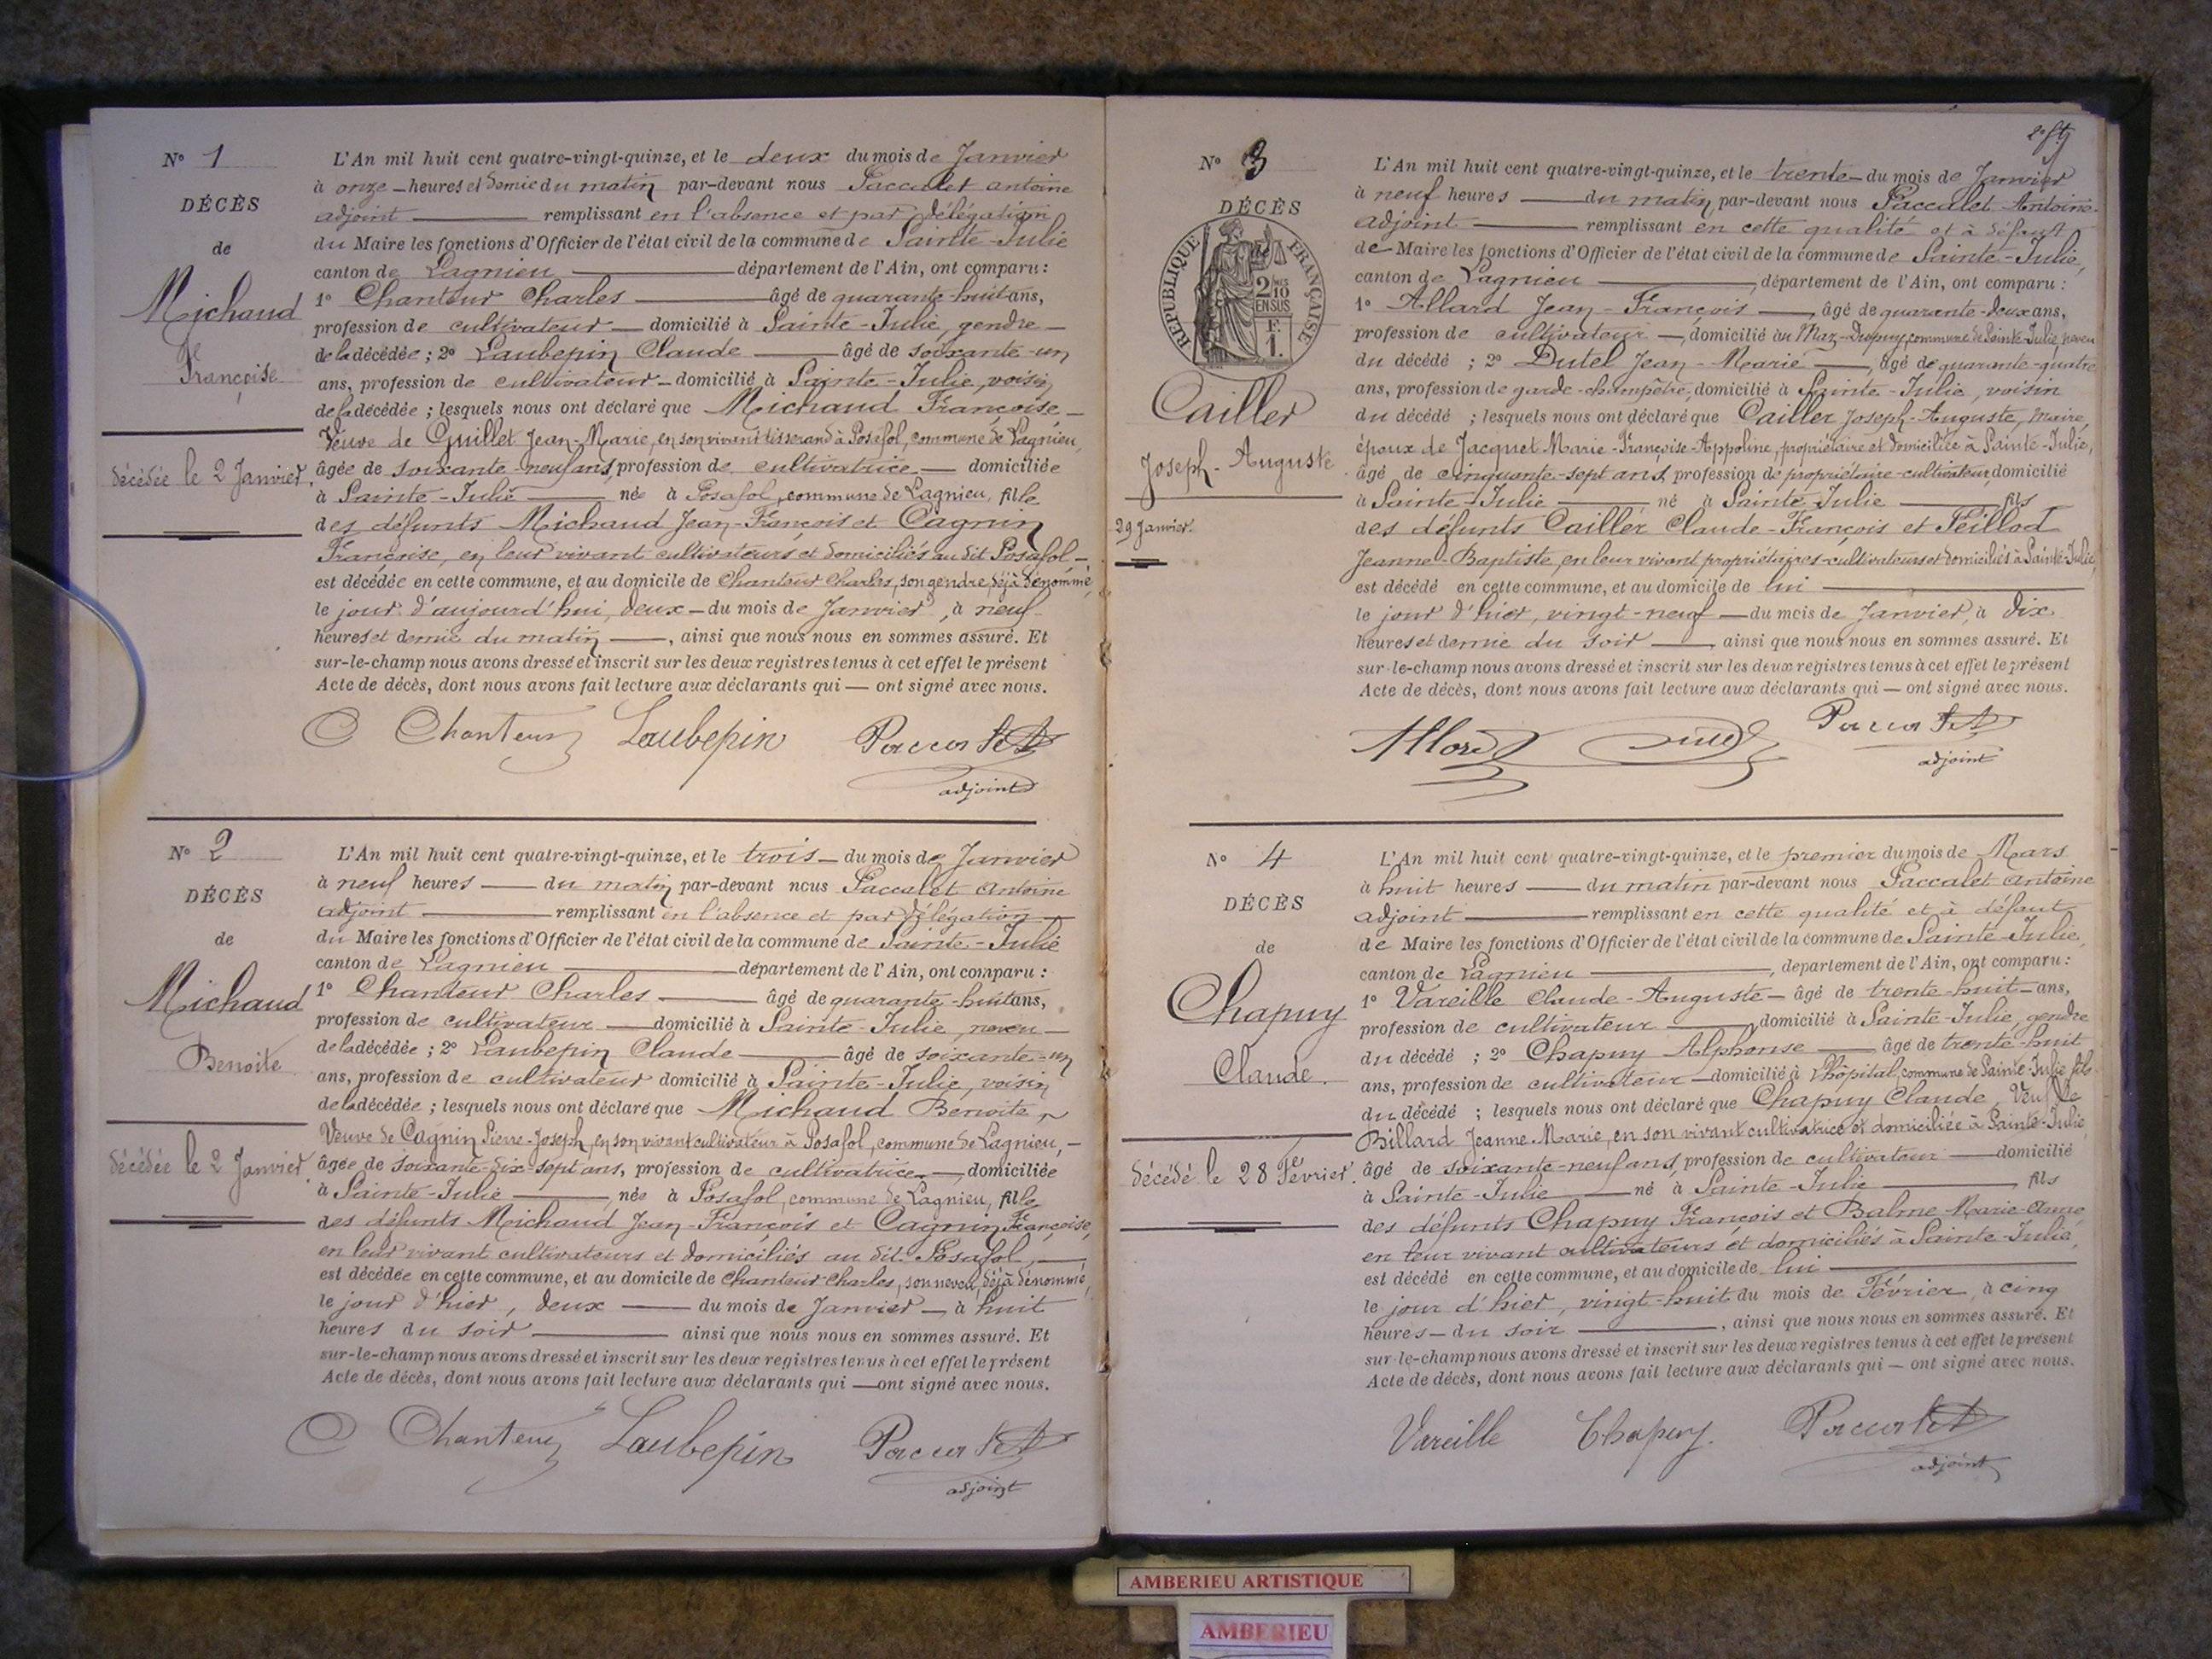 N° 1
DÉCÈS
de
Michaud
Françoise
décédée le 2 Janvier.
L'An mil huit cent quatre-vingt-quinze, et le deux du mois de Janvier
à onze heures et demie du matin par-devant nous Paccalet antoine
adjoint remplissant en l'absence et par délégation
du Maire les fonctions d'Officier de l'état civil de la commune de Sainte-Julie
canton de Lagnieu département de l'Ain, ont comparu :
1° Chanteur Charles âgé de quarante-huit ans,
profession de cultivateur domicilié à Sainte-Julie, gendre
de la décédée ; 2° Laubepin Claude âgé de soixante-un
ans, profession de cultivateur domicilié à Sainte-Julie, voisin
de la décédée ; lesquels nous ont déclaré que Michaud Françoise
Veuve de Guillet Jean-Marie, en son vivant tisserand à Posafol, commune de Lagnieu,
âgée de soixante-neuf ans, profession de cultivatrice domiciliée
à Sainte-Julie née à Posafol, commune de Lagnieu, fille
des défunts Michaud Jean-François et Cagnin
Françoise, en leur vivant cultivateurs et domiciliés au dit Posafol
est décédée en cette commune, et au domicile de Chanteur Charles, son gendre, déjà dénommé,
le jour d'aujourd'hui, deux du mois de Janvier, à neuf
heures et demie du matin, ainsi que nous nous en sommes assuré. Et
sur-le-champ nous avons dressé et inscrit sur les deux registres tenus à cet effet le présent
Acte de décès, dont nous avons fait lecture aux déclarants qui — ont signé avec nous.
C Chanteur Laubepin Paccalet
adjoint
N° 2
DÉCÈS
de
Michaud
Benoite
décédée le 2 Janvier.
L'An mil huit cent quatre-vingt-quinze, et le trois du mois de Janvier
à neuf heures du matin par-devant nous Paccalet Antoine
adjoint remplissant en l'absence et par délégation
du Maire les fonctions d'Officier de l'état civil de la commune de Sainte-Julie
canton de Lagnieu département de l'Ain, ont comparu :
1° Chanteur Charles âgé de quarante-huit ans,
profession de cultivateur domicilié à Sainte-Julie, neveu
de la décédée ; 2° Laubepin Claude âgé de soixante-un
ans, profession de cultivateur domicilié à Sainte-Julie, voisin
de la décédée ; lesquels nous ont déclaré que Michaud Benoite,
Veuve de Cagnin Pierre-Joseph, en son vivant cultivateur à Posafol, commune de Lagnieu,
âgée de soixante-dix-sept ans, profession de cultivatrice domiciliée
à Sainte-Julie, née à Posafol, commune de Lagnieu, fille
des défunts Michaud Jean-François et Cagnin Françoise,
en leur vivant cultivateurs et domiciliés au dit Posafol,
est décédée en cette commune, et au domicile de Chanteur Charles, son neveu, déjà dénommé,
le jour d'hier, deux du mois de Janvier à huit
heures du soir ainsi que nous nous en sommes assuré. Et
sur-le-champ nous avons dressé et inscrit sur les deux registres tenus à cet effet le présent
Acte de décès, dont nous avons fait lecture aux déclarants qui — ont signé avec nous.
C Chanteur Laubepin Paccalet
adjoint
N° 3
DÉCÈS
RÉPUBLIQUE FRANÇAISE
2/10
EN SUS
F.
1.
Cailler
Joseph-Auguste
29 Janvier.
L'An mil huit cent quatre-vingt-quinze, et le trente du mois de Janvier
à neuf heures du matin, par-devant nous Paccalet Antoine
adjoint remplissant en cette qualité et à défaut
de Maire les fonctions d'Officier de l'état civil de la commune de Sainte-Julie,
canton de Lagnieu, département de l'Ain, ont comparu :
1° Allard Jean-François, âgé de quarante-deux ans,
profession de cultivateur, domicilié au Maz-Dupuy, commune de Sainte-Julie, neveu
du décédé ; 2° Dutel Jean-Marie, âgé de quarante-quatre
ans, profession de garde-champêtre, domicilié à Sainte-Julie, voisin
du décédé ; lesquels nous ont déclaré que Cailler Joseph-Auguste, Maire,
époux de Jacquet Marie-Françoise-Appoline, propriétaire et domiciliée à Sainte-Julie,
âgé de cinquante-sept ans, profession de propriétaire-cultivateur domicilié
à Sainte-Julie né à Sainte-Julie fils
des défunts Cailler Claude-François et Peillod
Jeanne-Baptiste, en leur vivant propriétaires-cultivateurs et domiciliés à Sainte-Julie,
est décédé en cette commune, et au domicile de lui
le jour d'hier, vingt-neuf du mois de Janvier, à dix
heures et demie du soir, ainsi que nous nous en sommes assuré. Et
sur-le-champ nous avons dressé et inscrit sur les deux registres tenus à cet effet le présent
Acte de décès, dont nous avons fait lecture aux déclarants qui — ont signé avec nous.
Allard Paccalet
adjoint
N° 4
DÉCÈS
de
Chapuy
Claude.
décédé le 28 Février.
L'An mil huit cent quatre-vingt-quinze, et le premier du mois de Mars
à huit heures du matin par-devant nous Paccalet Antoine
adjoint remplissant en cette qualité et à défaut
de Maire les fonctions d'Officier de l'état civil de la commune de Sainte-Julie,
canton de Lagnieu, département de l'Ain, ont comparu :
1° Vareille Claude-Auguste âgé de trente-huit ans,
profession de cultivateur, domicilié à Sainte-Julie, gendre
du décédé ; 2° Chapuy Alphonse âgé de trente-huit
ans, profession de cultivateur domicilié à L'hôpital, commune de Sainte-Julie, fils
du décédé ; lesquels nous ont déclaré que Chapuy Claude, Veuf de
Billard Jeanne Marie, en son vivant cultivatrice et domiciliée à Sainte-Julie,
âgé de soixante-neuf ans, profession de cultivateur domicilié
à Sainte-Julie né à Sainte-Julie fils
des défunts Chapuy François et Balme Marie-Anne
en leur vivant cultivateurs et domiciliés à Sainte-Julie,
est décédé en cette commune, et au domicile de lui
le jour d'hier, vingt-huit du mois de Février, à cinq
heures du soir, ainsi que nous nous en sommes assuré. Et
sur-le-champ nous avons dressé et inscrit sur les deux registres tenus à cet effet le présent
Acte de décès, dont nous avons fait lecture aux déclarants qui — ont signé avec nous.
Vareille Chapuy. Paccalet
adjoint
AMBERIEU ARTISTIQUE
AMBERIEU